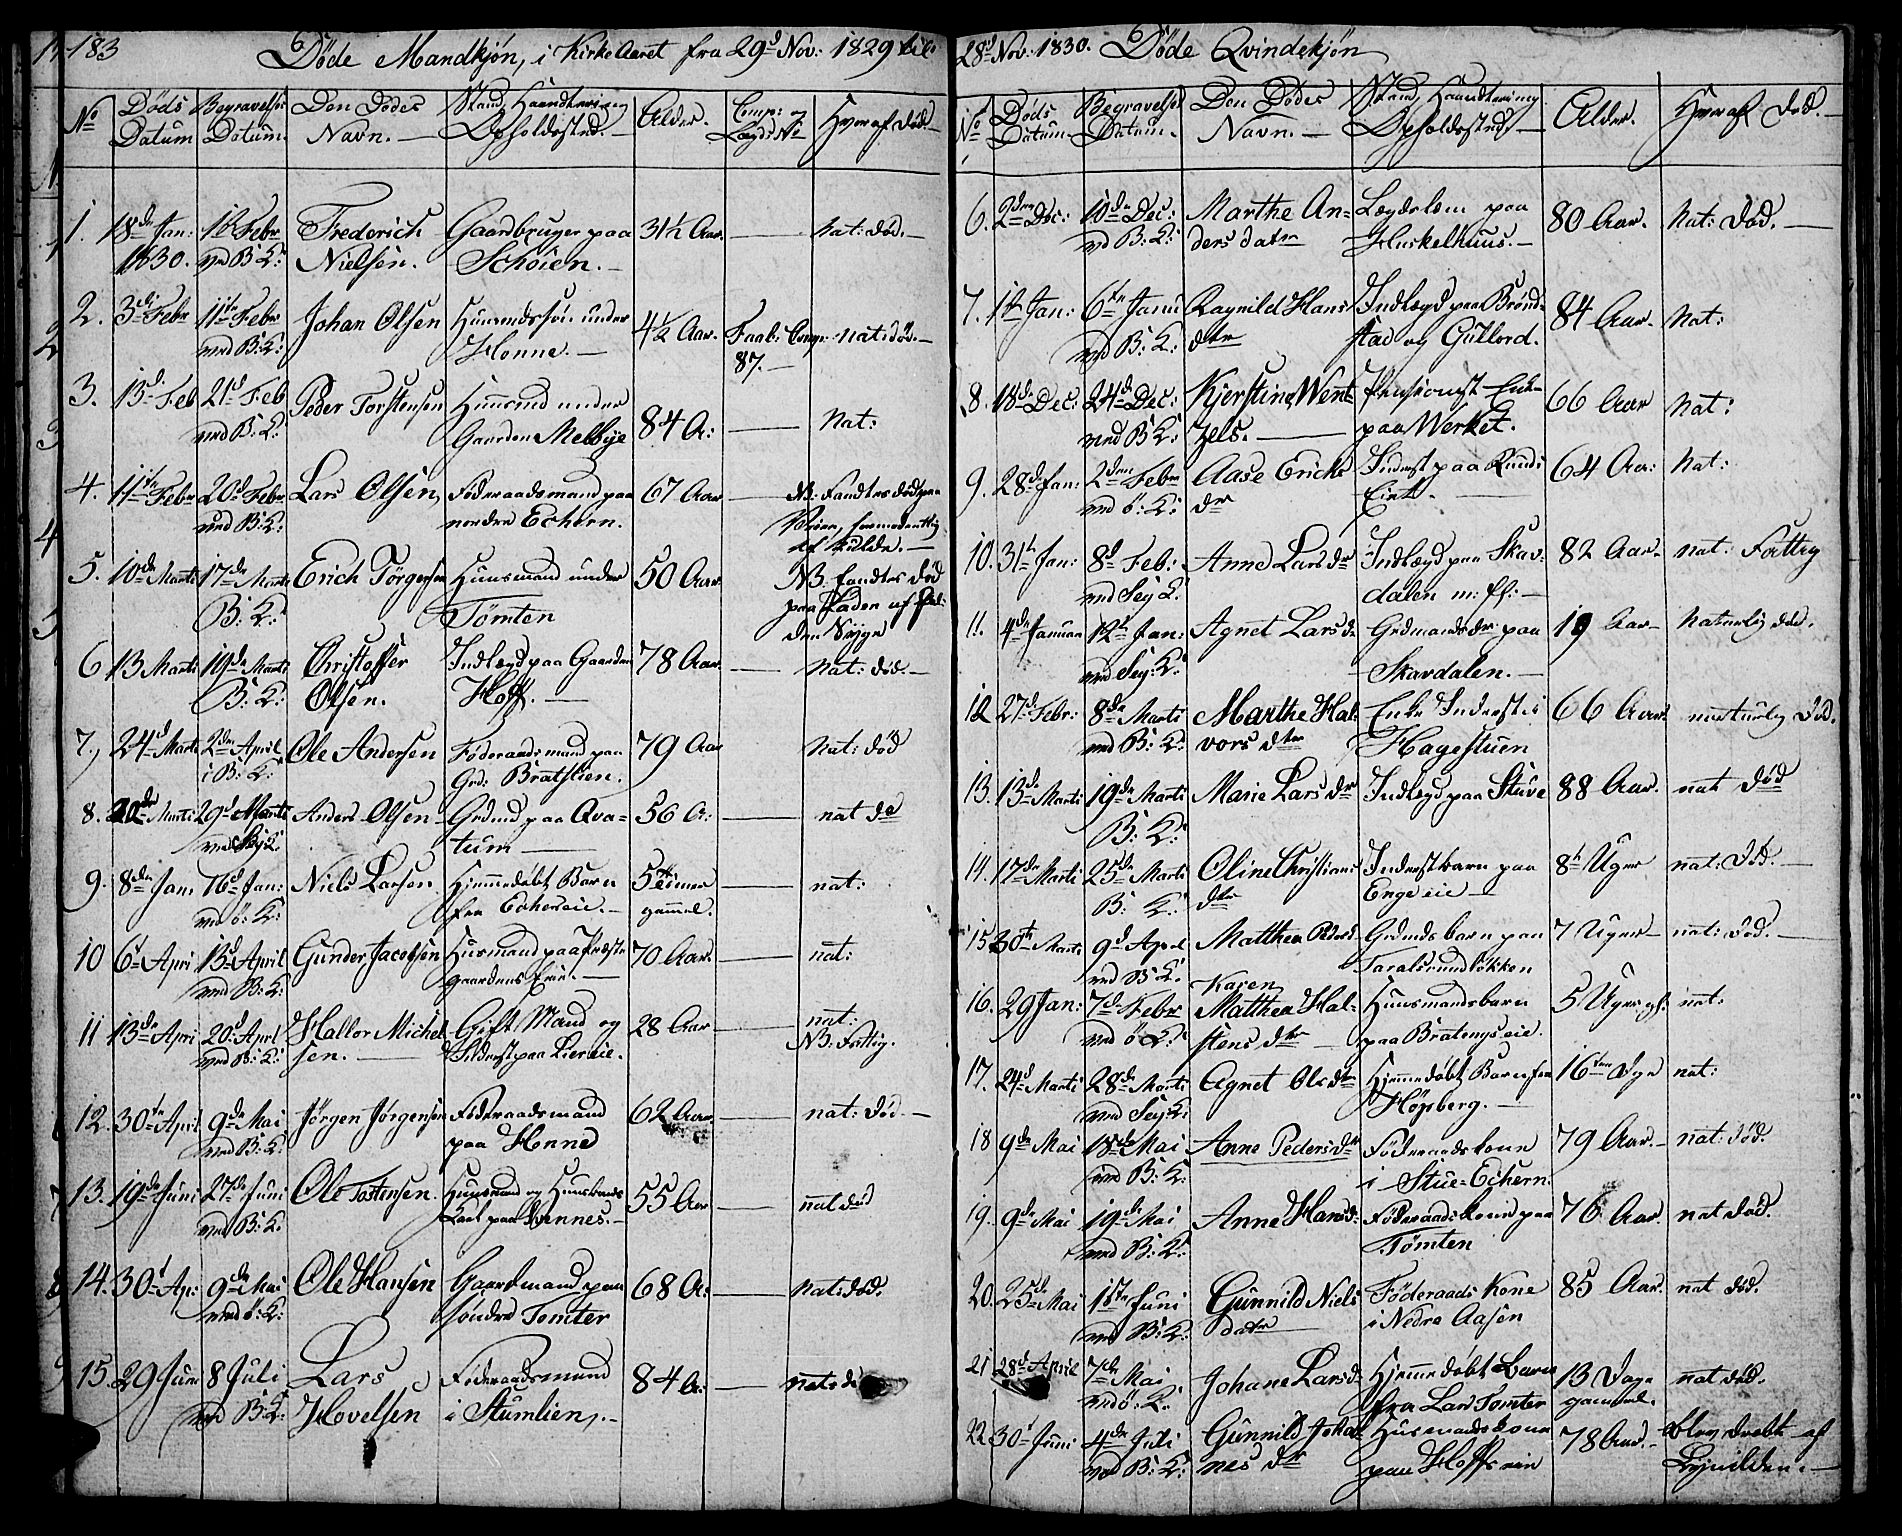 183 Døde Mandkjøn, i Kirke Aaret fra 29d Nov: 1829 til
No Døds Datum Begravelses Datum. Den Dødes Navn. — Stand, Haandtering Opholdssted. — Alder. Comp: og Lægds No Hvoraf død. —
1. 18de Jan: 1830. Febr ved B: K: Frederich Nielsen. Gaardbruger paa Schøien. — 31½ Aar. — Nat: død. —
2. 3di Febr 11te Febr ved B: K: Johan Olsen Huusmands søn under Honne. — 4½ Aar. Comp: 87. — nat: død. —
3. 13d Feb 21d Feb ved B: K: Peder Torstensen Huusmd under Gaarden Melbye 84 A: — Nat:
4. 11te Febr 20d Febr ved B: K: Lars Olsen, Føderaadsmand paa nordre Echern. 67 Aar — NB: Fandtes død paa Veien, formodentlig af Kulde. —
5. 10de Marti 17de Marti B: K: Erich Jørgensen Huusmand under Tømten 50 Aar. NB. fandtes død paa
6 13 Marti 19de Marti B: K: Christoffer Olsen. Indlægd paa Gaarden Hoff. — 78 Aar. — Nat: død. —
7. 24d Marti 2den April i B: K: Ole Andersen Føderaadsmand paa Grd: Bratlien. 79 Aar nat: død
8. 20de Marti 29d Marti ved Anders Olsen Grdmd paa Qvatum — 56 A: — nat dø
9. 8de Jan. 16d Jan: ved ö: K: Niels Larsen Hjemmedøbt Barn fra Echerseie. — 5 gammel. — nat:
10 6t April 13d April ved B: K: Gunder Jacobsen Husmand paa Præstegaardens Eie. — 70 Aar. — nat:
11 13de Apri 20d Aprl ved B: K: Hallor Michelsen. — Gift Mand og Inderst paa Liereie. 28 Aar — nat: NB: Fattig.
12. 30te April 9de Mai ved B: K: Jørgen Jørgensen Føderaadsmand paa Honne 62 Aar. nat: død. —
13. 19de Juni 27de Juni ved B: K: Ole Tostensen. Huusmand og paa 55 Aar — nat død
14. 30t Ap: 9de Mai ved ö: K: Ole Hansen Gaardmand paa søndre Tomter 68 A: — nat: død.
15. 29 Juni 8 Juli ved B: K: Lars Hovelsen Føderaadsmand i Stumlien. — 84 A: — nat: d
28d Nov: 1830. Døde Qvindekjøn
No Døds Datum. Begravelses Datum. Den Dødes Navn. — Stand, Haandtering Opholdssted. — Alder. Hvoraf død. —
6. 2den Dec: 10de Dec: ved B: K: Marthe Andersdatr Lægdslem paa Huskelhuus. — 80 Aar. Nat: død. —
7. 1te Jan: 6te Janu ved B: K: Ragnild Hans dtr Indlægd paa Brøndstad og Gullord. 84 Aar. Nat:
8. 18de Dec: 24de Dec: ved B: K: Kjerstine Wentzels. — Pensionist Enke paa Werket. 66 Aar Nat:
9. 28de Jan: 2den Febr ved ö: K: Aase Erichs dr Inderst paa Runds Eie. — 64 Aar: Nat:
10. 31te Jan: 8d Feb: ved Sey K: Anne Lars dr Indlægd paa Skavdalen m: fl: — 82 Aar. nat: Fattig
11. 4de Januar 12t Jan: ved Sey: K: Agnet Lars dr Grdmandsdr paa Skavdalen. — 19 Aar — Naturlig død.
12 27d Febr: 8de Marti ved B: K: Marthe Halvors dtr Enke Inderst i Hagestuen 66 Aar naturlig død.
13. 13de Marti 19de Marti B: K: Marie Lars dr Indlægd paa Stuve 88 Aar. nat død
14. 17de Marti 25de Marti B: K: Oline Christians dtr Inderstbarn paa Enge eie — 8t Uger nat: død. —
15 30te Marti 9d April ved B: K: Matthea Peders Grdmds barn paa Taralsrundløkken 7 Uger — nat: død. —
16. 29 Jan: 7de Febr ved ö K: Karen Matthea Halstens dtr Huusmandsbarn paa Bratengs eie. 5 Uger gl: nat:
17. 24d Marti 28de Marti ved Sey: K: Agnet Ols dtr Hjemmedøbt Barn fra Høgsberg. — 16ten Dge nat:
18 9de Mai 18de Mai ved B: K: Anne Peders dr Føderaadskone i Stue-Echern 79 Aar. — nat: død.
19. 9de Mai 19de Mai ved B: K: Anne Hans d: Føderaadskone paa Tømten 76 Aar. nat død.
20. 25de Mai Juni ved B: K: Gunnild Niels datr Føderaads Kone i Nedre Aasen 85 Aar. nat død.
21 28d April 7de Mai ved ö. K: Johane Lars d: Hjemmedøbt Barn fra Lars Tomter 13 Dage gammel. nat død.
22 30t Juni 4de Juli ved B: K: Gunnild Johannes dr Husmandskone paa Hoffs eie 78 Aar. — Blev dræbt af Lynilden. —